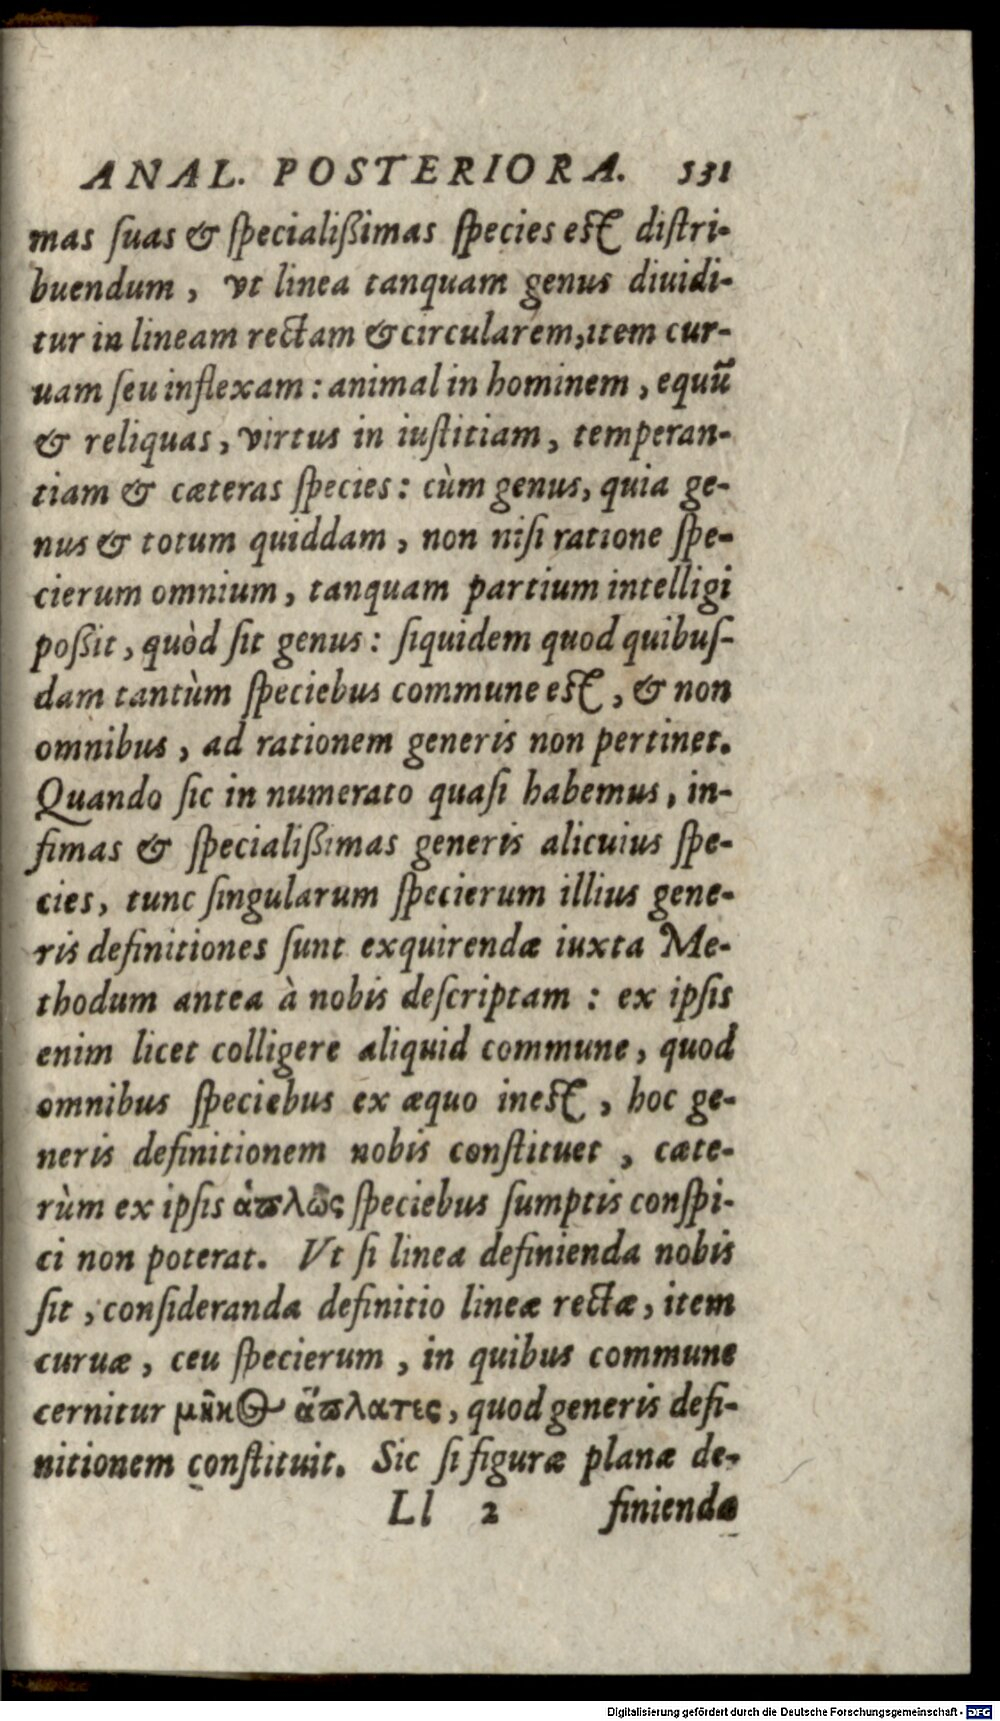 ANAL. POSTERIORA. 531
mas ſuas & ſpecialißimas ſpecies eſt diſtri-
buendum, vt linea tanquam genus diuidi-
tur in lineam rectam & circularem, item cur-
uam ſeu inflexam: animal in hominem, equū
& reliquas, virtus in iuſtitiam, temperan-
tiam & cæteras ſpecies: cùm genus, quia ge-
nus & totum quiddam, non niſi ratione ſpe-
cierum omnium, tanquam partium intelligi
poßit, quòd ſit genus: ſiquidem quod quibuſ-
dam tantùm ſpeciebus commune eſt, & non
omnibus, ad rationem generis non pertinet.
Quando ſic in numerato quaſi habemus, in-
fimas & ſpecialißimas generis alicuius ſpe-
cies, tunc ſingularum ſpecierum illius gene-
ris definitiones ſunt exquirendæ iuxta Me-
thodum antea à nobis deſcriptam: ex ipſis
enim licet colligere aliquid commune, quod
omnibus ſpeciebus ex æquo ineſt, hoc ge-
neris definitionem nobis conſtituet, cæte-
rùm ex ipſis ἁϖλῶς ſpeciebus ſumptis conſpi-
ci non poterat. Vt ſi linea definienda nobis
ſit, conſideranda definitio lineæ rectæ, item
curuæ, ceu ſpecierum, in quibus commune
cernitur μῆκος ἄϖλατες, quod generis defi-
nitionem conſtituit. Sic ſi figuræ planæ de-
Ll 2 finienda
Digitalisierung gefördert durch die Deutsche Forschungsgemeinschaft - DFG